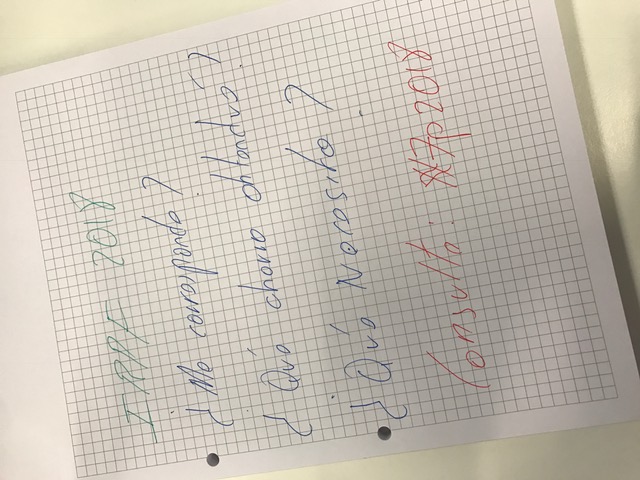 IRPF 2018
¿Me corresponde?
¿Qué ahorro obtengo?
¿Qué Necesito?
Consulta: #7p2018